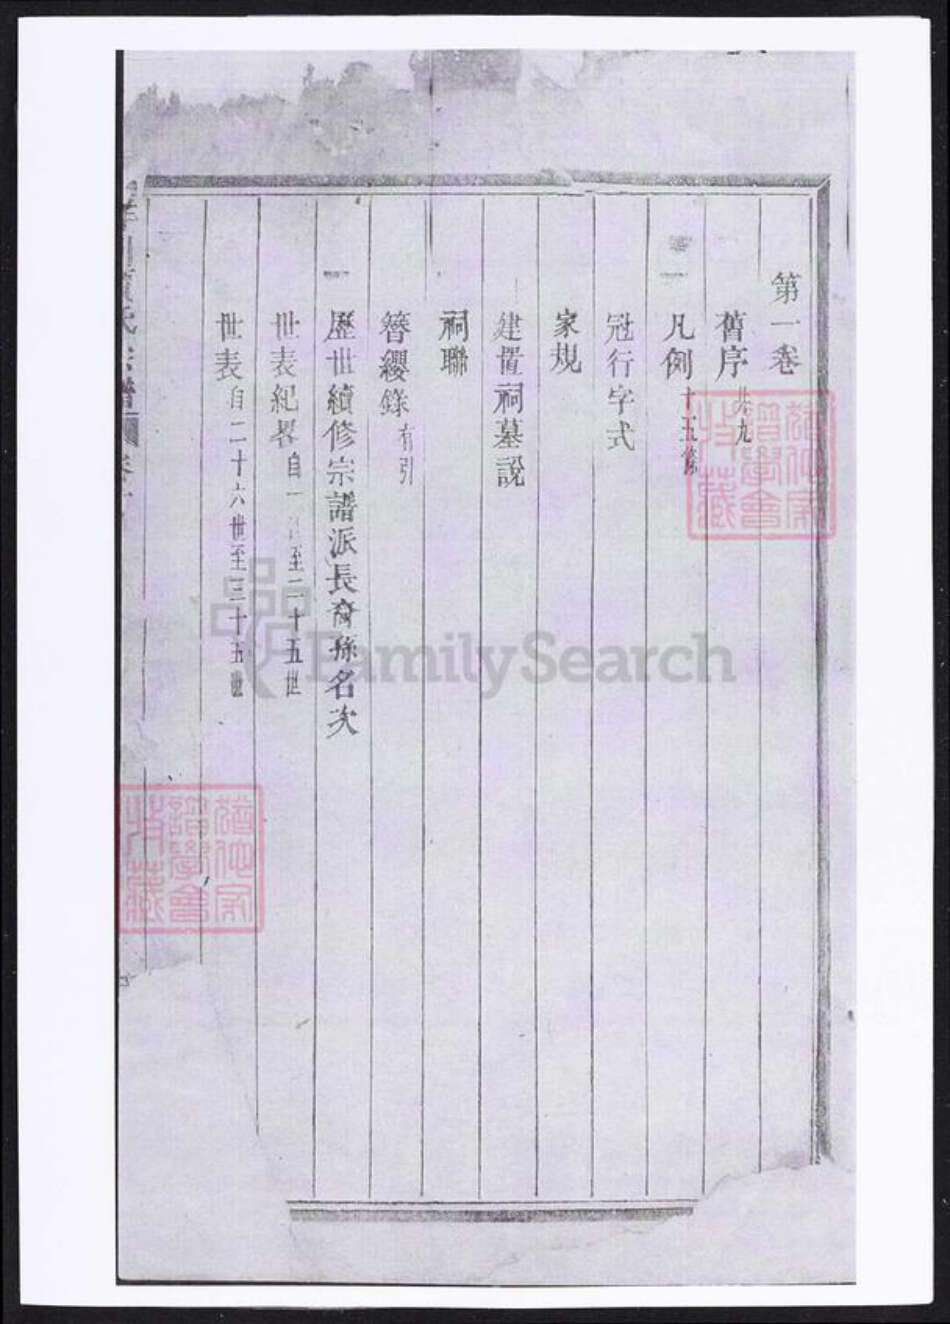 第一卷
舊序 共九
凡例 十五條
冠行字式
家規
建置祠墓說
祠聯
簪纓錄 有引
歷世續修宗譜派長裔孫名次
世表紀畧 自一 至二十五世
世表 自二十六世至三十五世
氏宗譜
FamilySearch